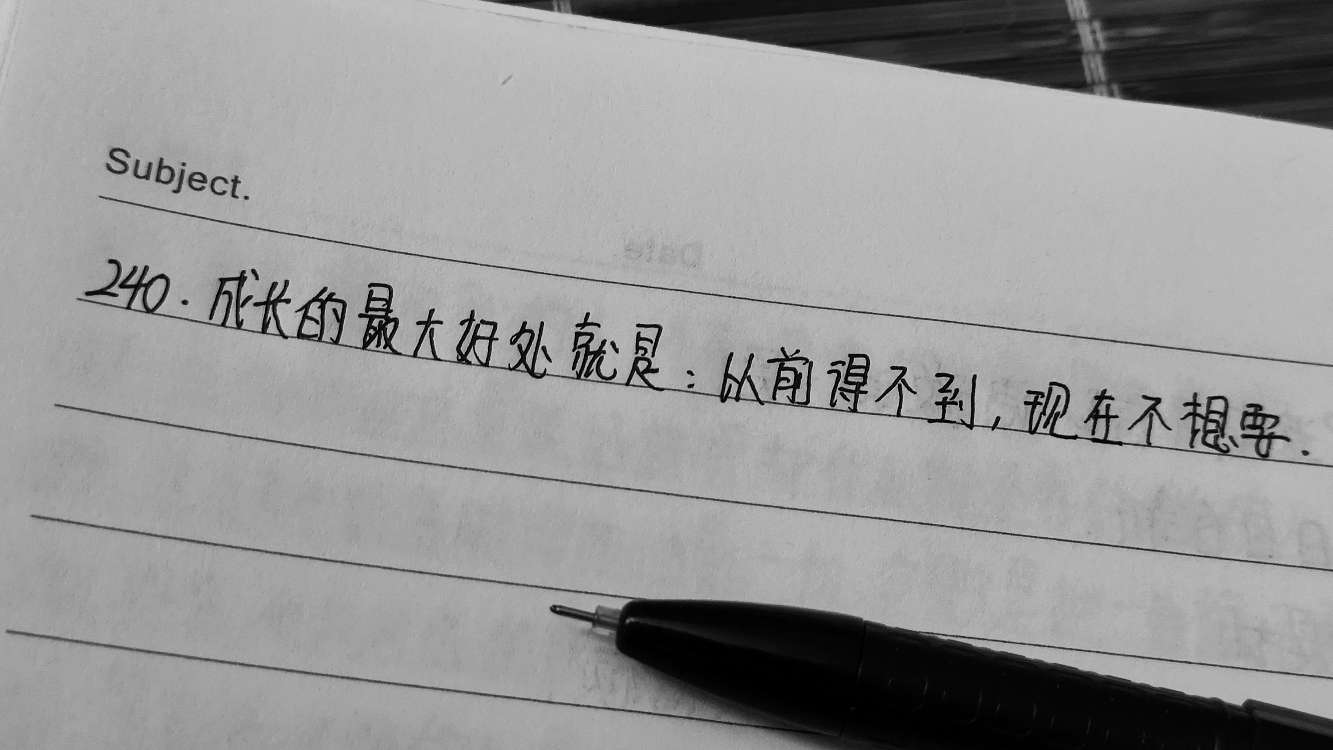 Subject.
Date
240. 成长的最大好处就是：以前得不到，现在不想要.